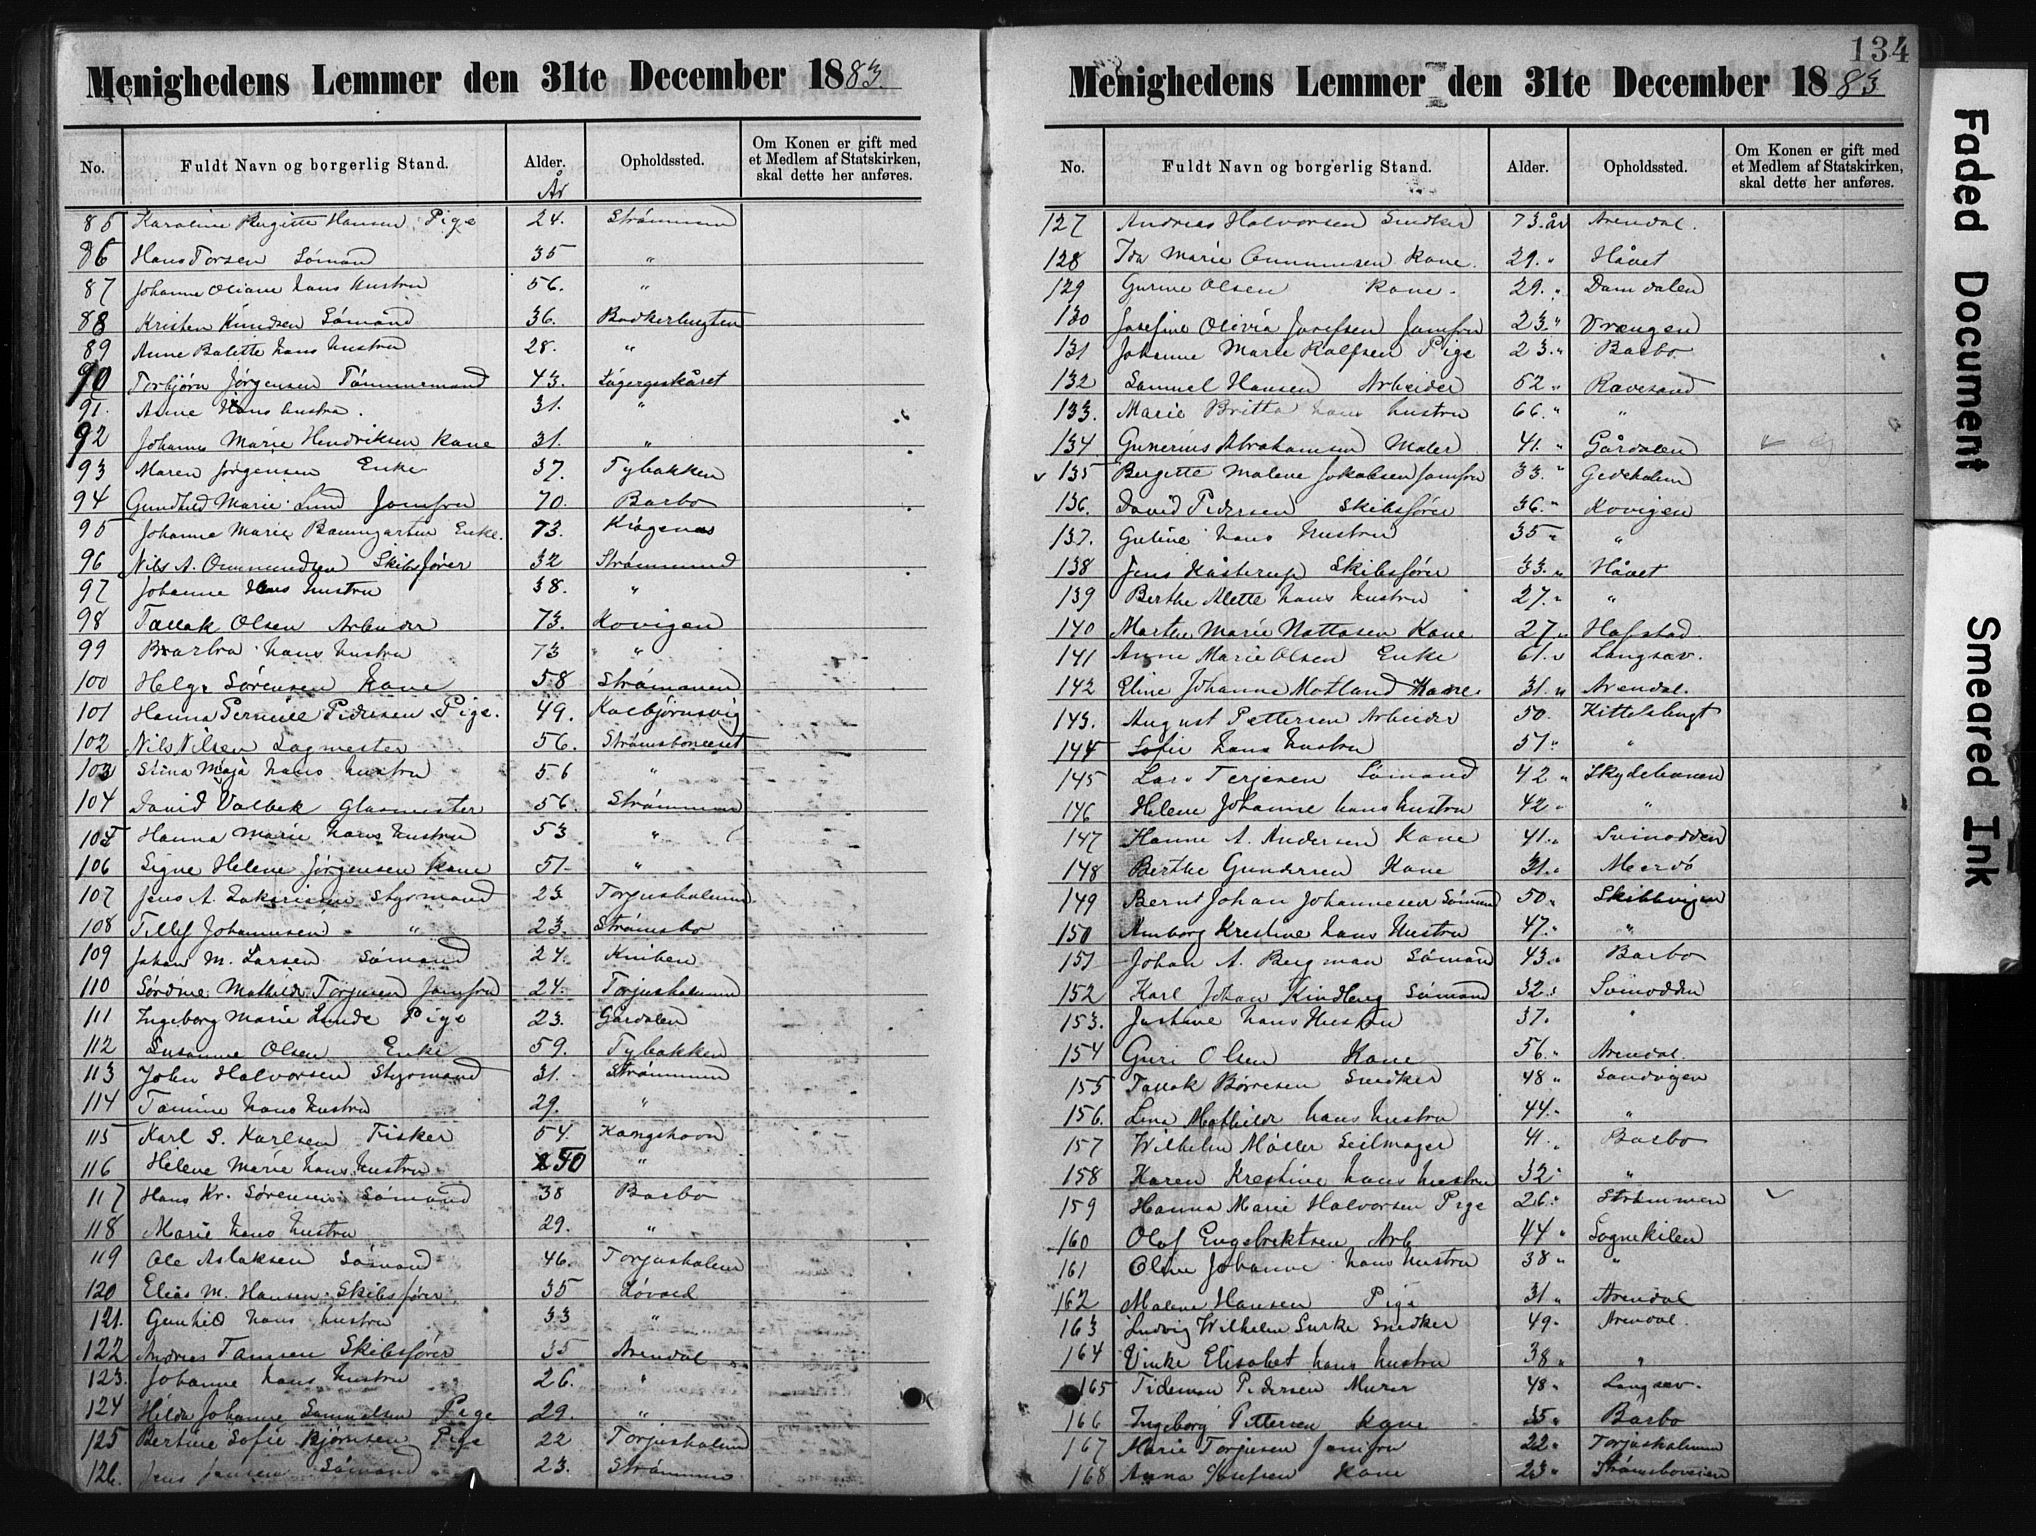 Menighedens Lemmer den 31te December 1883.
No. Fuldt Navn og borgerlig Stand. Alder. Opholdssted. Om Konen er gift med et Medlem af Statskirken, skal dette her anføres.
År
85 Karoline Birgitte Hansen Pige 24. Strømmen
86 Hans Torsen Sømand 35 "
87 Johanne Oliane hans hustru 56. "
88 Kristen Knudsen Sømand 36. Bødkerbugten
89 Anne Bolette hans hustru 28. "
90 Torbjørn Jørgensen Tømmemand 43.
91. Anne Hans hustru. 31. "
92 Johanne Marie Hendriksen Kone 31. "
93 Maren Jørgensen Enke 37. Tybakken
94 Gundhild Marie Lund Jomfru 70. Barbo
95 Johanne Marie Baumgarten Enke. 73. Kragenæs
96 Nils A. Ommundsen Skibsfører 32 Strømmen
97 Johanne Hans hustru 38. "
98 Tallak Olsen Arbeider 73. Kovigen
99 Barbra hans hustru 73 "
100 Helge Sørensen Kone 58 Strømmen
101 Hanna Pernille Pedersen Pige. 49. Kolbjørnsvig
102 Nils Nilsen Lagmester 56. Strømsboneset
103 Stina Maja hans hustru 56 "
104 David Valbek Glasmester 56. Strømmen
105 Hanna Marie hans hustru 53 "
106 Signe Helene Jørgensen Kone 51 "
107 Jens A. Zakrisen Styrmand 23 Torjusholmen
108 Tellef Johannesen " 23. Strømsbo
109 Johan M. Larsen Sømand 24. Kniben
110 Sørdine Mathilde Torjusen Jomfru 24. Torjusholmen
111 Ingeborg Marie Lunde Pige 23. Gårdalen
112 Susanne Olsen Enke 59. Tybakken
113 John Halvorsen Styrmand 31. Strømmen
114 Tomine hans hustru 29. "
115 Karl S. Karlsen Fisker 54. Kongshavn
116 Helene Marie hans hustru 50 "
117 Hans Kr. Sørensen Sømand 38 Barbo
118 Marie hans hustru 29. "
119 Ole Aslaksen Sømand 46. Torjusholmen
120 Elias M. Hansen Skibsfører 35 Løvold
121. Gunhild hans hustru 33 "
122 Andreas Tamsen Skibsfører 35 Arendal
123. Johanne hans hustru 26. "
124 Hilda Johanne Samuelsen Pige 29. "
125 Bertine Sofie Bjørnsen Pige 22 Torjusholmen
126. Jens Jensen Sømand 23. Strømmen
134
Menighedens Lemmer den 31te December 1883
No. Fuldt Navn og borgerlig Stand. Alder. Opholdssted. Om Konen er gift med et Medlem af Statskirken, skal dette her anføres.
127 Andreas Halvorsen Snedker 73. år Arendal.
128 Ida Marie Gunnunsen Kone. 29. " Håvet
129 Gurine Olsen Kone. 29. " Damdalen
130 Josefine Olivia Josefsen Jomfru 23. " Vrengen
131 Johanne Marie Rolfsen Pige 23. " Barbo
132 Samuel Hansen Arbeider 52 " Ravesand
133. Marie Britta hans hustru 66. " "
134. Gunerius Abrahamsen Maler 41. " Gårdalen
v 135 Bergitte Malene Jakobsen Jomfru 33. " Gjedeholm
136. David Pedersen Skibsfører 36. " Kovigen
137. Guline hans hustru 35 " "
138 Jens Håsterup Skibsfører 33. " Håvet
139 Berthe Alette hans hustru 27. " "
140 Marthe Marie Nottosen Kone 27 " Hofstad.
141 Anne Marie Olsen Enke 61. " Langsæv.
142 Eline Johanne Motland Kone. 31. " Arendal.
143. August Pettersen Arbeider 50. Kittelsbugt
144 Sofie hans hustru 51 " "
145 Lars Terjesen Sømand 42 " Skydebanen
146 Helene Johanne hans hustru 42 " "
147 Hanne A. Andersen Kone 41. " Svinodden
148 Berthe Gundersen Kone 31. " Merdø
149 Bernt Johan Johannesen Sømand 50. " Skibbvigen
150 Amborg Krestine hans hustru 47. " "
151 Johan A. Bergman Sømand 43. " Barbo
152 Karl Johan Kindberg Sømand 32. " Svinodden
153. Justine hans hustru 37. "
154 Guri Olsen Kone 56. " Arendal.
155 Tallak Børresen Snedker 48 " Sandvigen
156. Lena Mathilde hans hustru 44. " "
157 Wilhelm Møller Seilmager 41. " Barbo
158 Karen Krestine hans hustru 32 " "
159 Hanna Marie Halvorsen Pige 26. " Strømmen
160 Olof Engebrektsen Arb 44 " Sognekilen
161 Oline Johanne hans hustru 38 " "
162 Malene Hansen Pige 31 " Arendal
163 Ludvig Wilhelm Lurke Snedker 49. " Arendal.
164 Vinke Elisabet hans hustru 38 " "
165 Tideman Pedersen Murer 48. " Langsæv.
166 Ingeborg Pettersen Kone 35. " Barbo
167 Marie Torjusen Jomfru 22. " Torjusholmen
168 Anna Josefsen Kone 23. " Strømsboveien
Faded Document
Smeared Ink